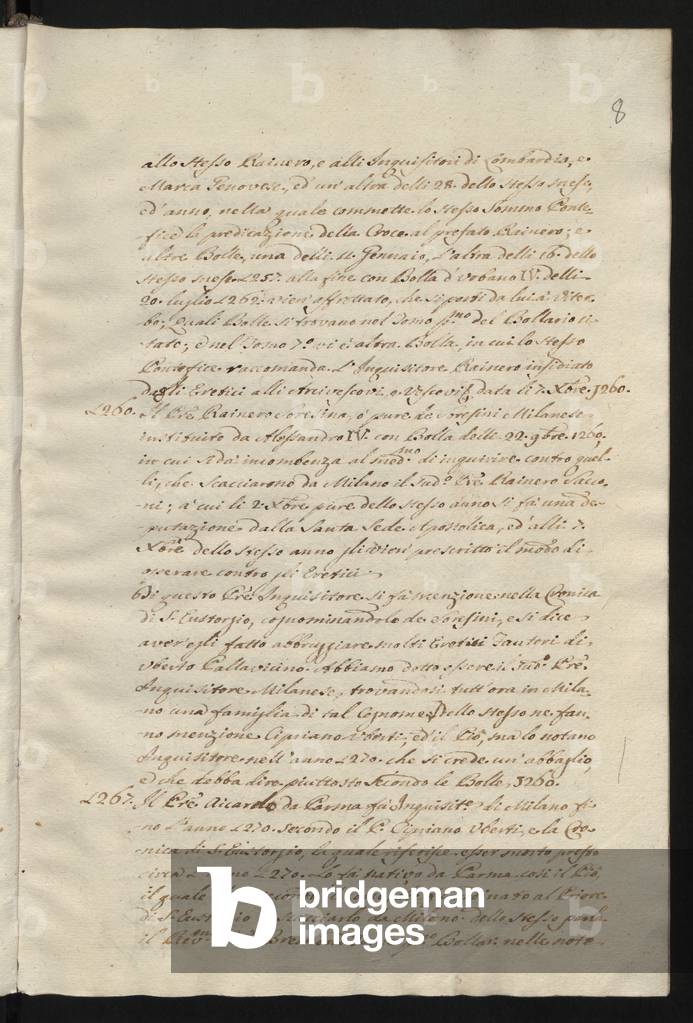 8
allo stesso Rainero, e alli Inquisitori di Lombardia, e
Marca Genovese, ed un' altra delli 28. dello stesso mese,
ed anno, nella quale commette lo stesso Sommo Ponte-
fice la predicazione della Croce al prefato Rainero; e
altre Bolle, una delli 11. Gennaio, l'altra delli 16. dello
stesso mese 1257. alla fine con Bolla d' Urbano IV. delli
20. luglio 1262. vien affrettato, che si porti da lui a Viter-
bo; quali Bolle si trovano nel Tomo pmo del Bollario ci-
tate; e nel Tomo 7o. vi è altra Bolla, in cui lo stesso
Pontefice raccomanda l' Inquisitore Rainero insidiato
dagli Eretici alli Arcivescovi, o Vescovi data li 7. Xbre. 1260.
1260. Il Pre Rainero Soresina, o pure de Soresini Milanese
instituito da Alessandro IV. con Bolla delli 22. 9bre. 1260.
in cui si da incombenza al medmo. di inquirire contro quel-
li, che scacciarono da Milano il sudo. Pre Rainero Sacco-
ni; a cui li 2 Xbre pure dello stesso anno si fa una de-
putazione dalla Santa Sede Apostolica, ed alli 7.
Xbre dello stesso anno gli vien prescritto il modo di
osserare contro gli Eretici
Di questo Pre Inquisitore si fa menzione nella Cronica
di S. Eustorgio, cognominandolo de Soresini, e si dice
aver egli fatto abbrugiare molti Eretici Fautori di
Uberto Pallavicino. Abbiamo detto essere il sudo. Pre
Inquisitore Milanese, trovandosi tutt' ora in Mila-
no una famiglia di tal Cognome. Dello stesso ne fan-
no menzione Cipriano Uberti, ed il Piò, ma lo notano
Inquisitore nell' anno 1270. che si crede un' abbaglio,
ed che debba dire piuttosto secondo le Bolle, 1260.
1267. Il Pre Aicardo da Parma fu Inquisite. di Milano fi-
no l' anno 1270. secondo il P. Cipriano Uberti, e la Cro-
nica di S. Eustorgio, la quale riferisce esser morto presso
circa l' anno 1270. Lo fa nativo da Parma così il Piò,
il quale al Priore
di S. Eustorgio scacciarlo da Milano. dello stesso parla
il Bollar. nelle note
bridgeman
images